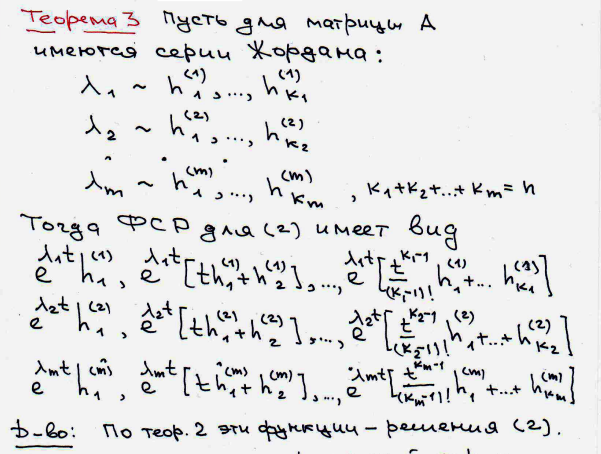 Теорема 3 Пусть для матрицы A
имеются серии Жордана:
λ₁ ~ h₁⁽¹⁾, ..., h_{k₁}⁽¹⁾
λ₂ ~ h₁⁽²⁾, ..., h_{k₂}⁽²⁾
λₘ ~ h₁⁽ᵐ⁾, ..., h_{kₘ}⁽ᵐ⁾, k₁+k₂+...+kₘ = n
Тогда ФСР для (2) имеет вид
e^{λ₁t} h₁⁽¹⁾, e^{λ₁t}[th₁⁽¹⁾+h₂⁽¹⁾], ..., e^{λ₁t}[t^{k₁-1}/(k₁-1)! h₁⁽¹⁾+... h_{k₁}⁽¹⁾]
e^{λ₂t} h₁⁽²⁾, e^{λ₂t}[th₁⁽²⁾+h₂⁽²⁾], ..., e^{λ₂t}[t^{k₂-1}/(k₂-1)! h₁⁽²⁾+...+h_{k₂}⁽²⁾]
e^{λₘt} h₁⁽ᵐ⁾, e^{λₘt}[th₁⁽ᵐ⁾+h₂⁽ᵐ⁾], ..., e^{λₘt}[t^{kₘ-1}/(kₘ-1)! h₁⁽ᵐ⁾+...+h_{kₘ}⁽ᵐ⁾]
Д-во: По теор. 2 эти функции – решения (2).